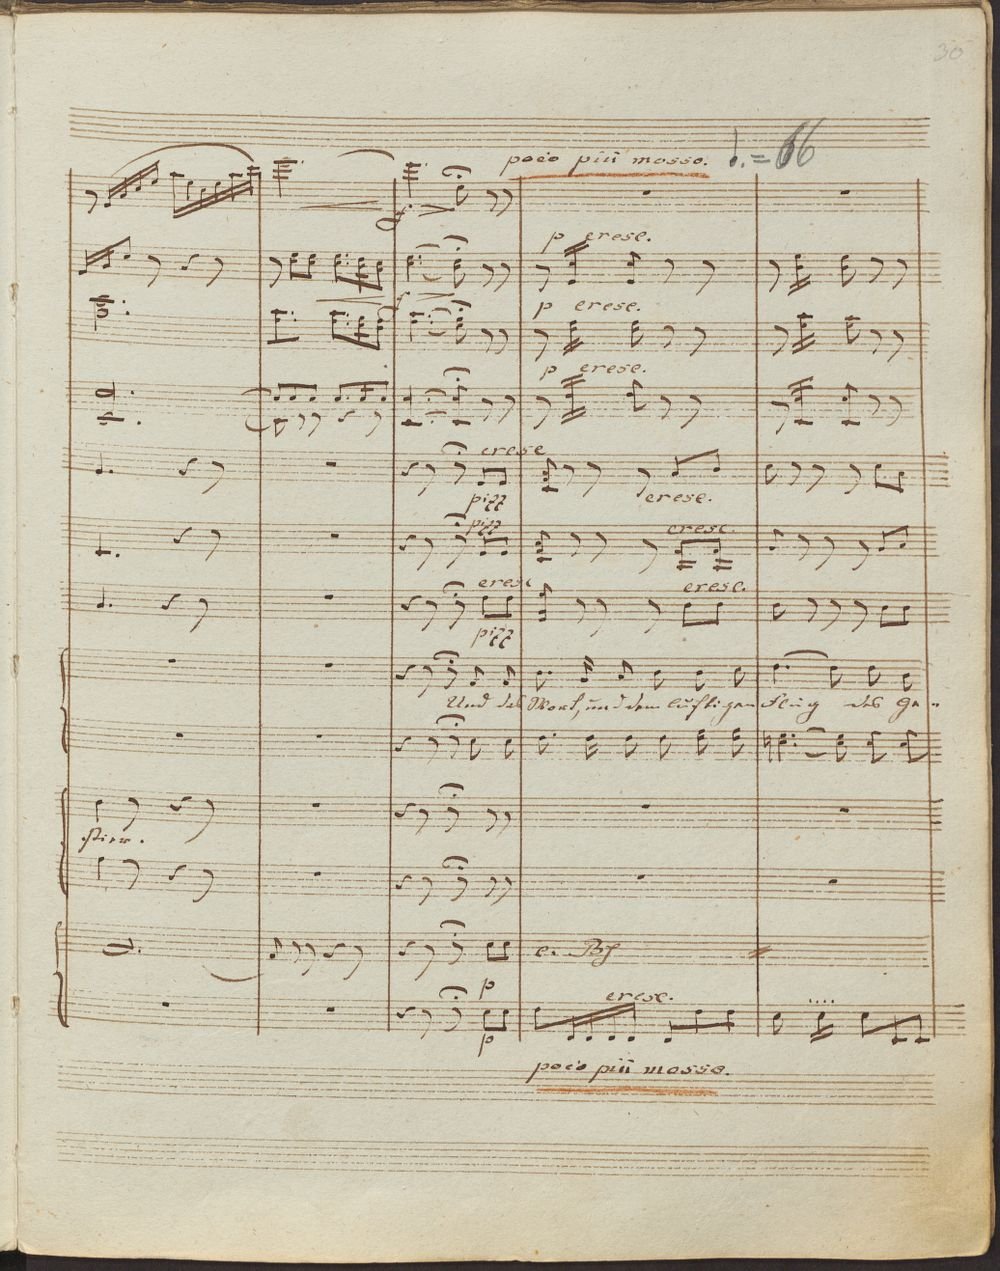 30
poco più mosso. ♩. = 66
p cresc.
p cresc.
p cresc.
cresc
pizz
cresc.
pizz
cresc.
cresc
cresc.
pizz
Und das Wort, und dem luftigen Flug des Ge-
stier.
c. B
p
cresc.
p
poco più mosso.